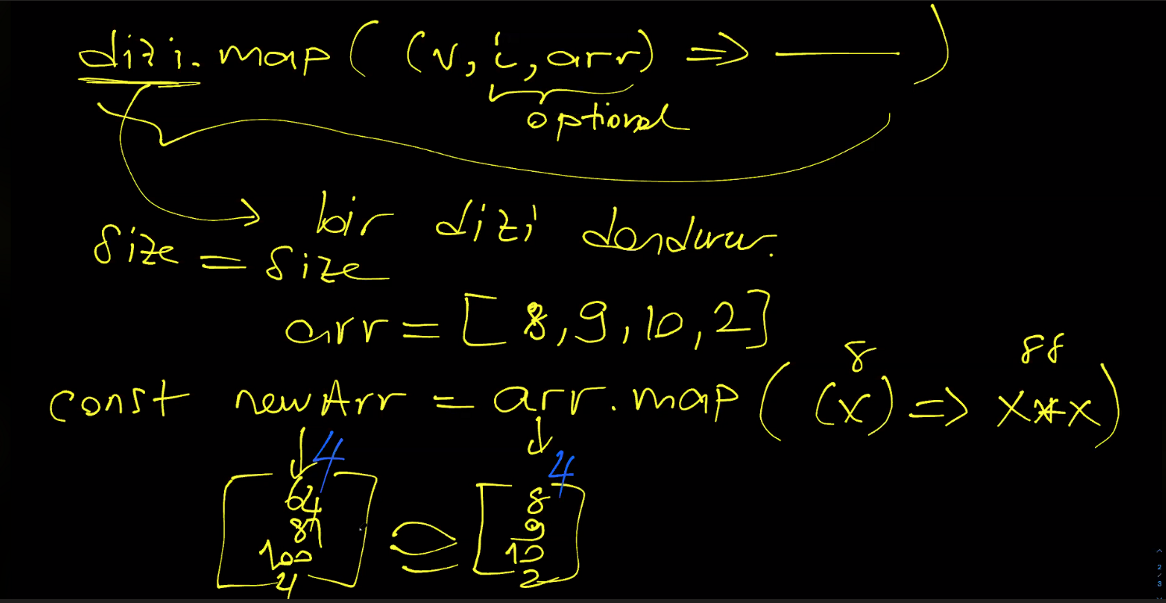 dizi.map( (v, i, arr) => ——— )
optional
bir dizi döndürür.
size = size
arr = [8, 9, 10, 2]
8 88
const newArr = arr.map( (x) => x*x )
4 4
64 8
81 9
100 10
4 2